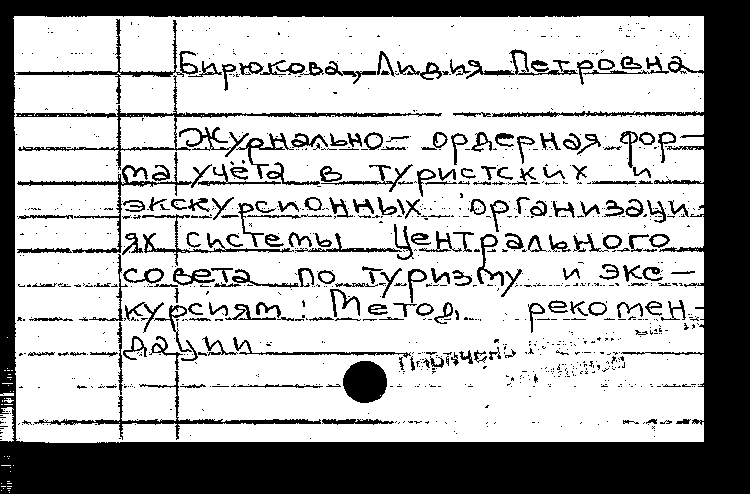 Бирюкова, Лидия Петровна
Журнально- ордерная фор-
ма учёта в туристских и
экскурсионных организаци-
ях системы Центрального
совета по туризму и экс-
курсиям: Метод. рекомен-
дации.